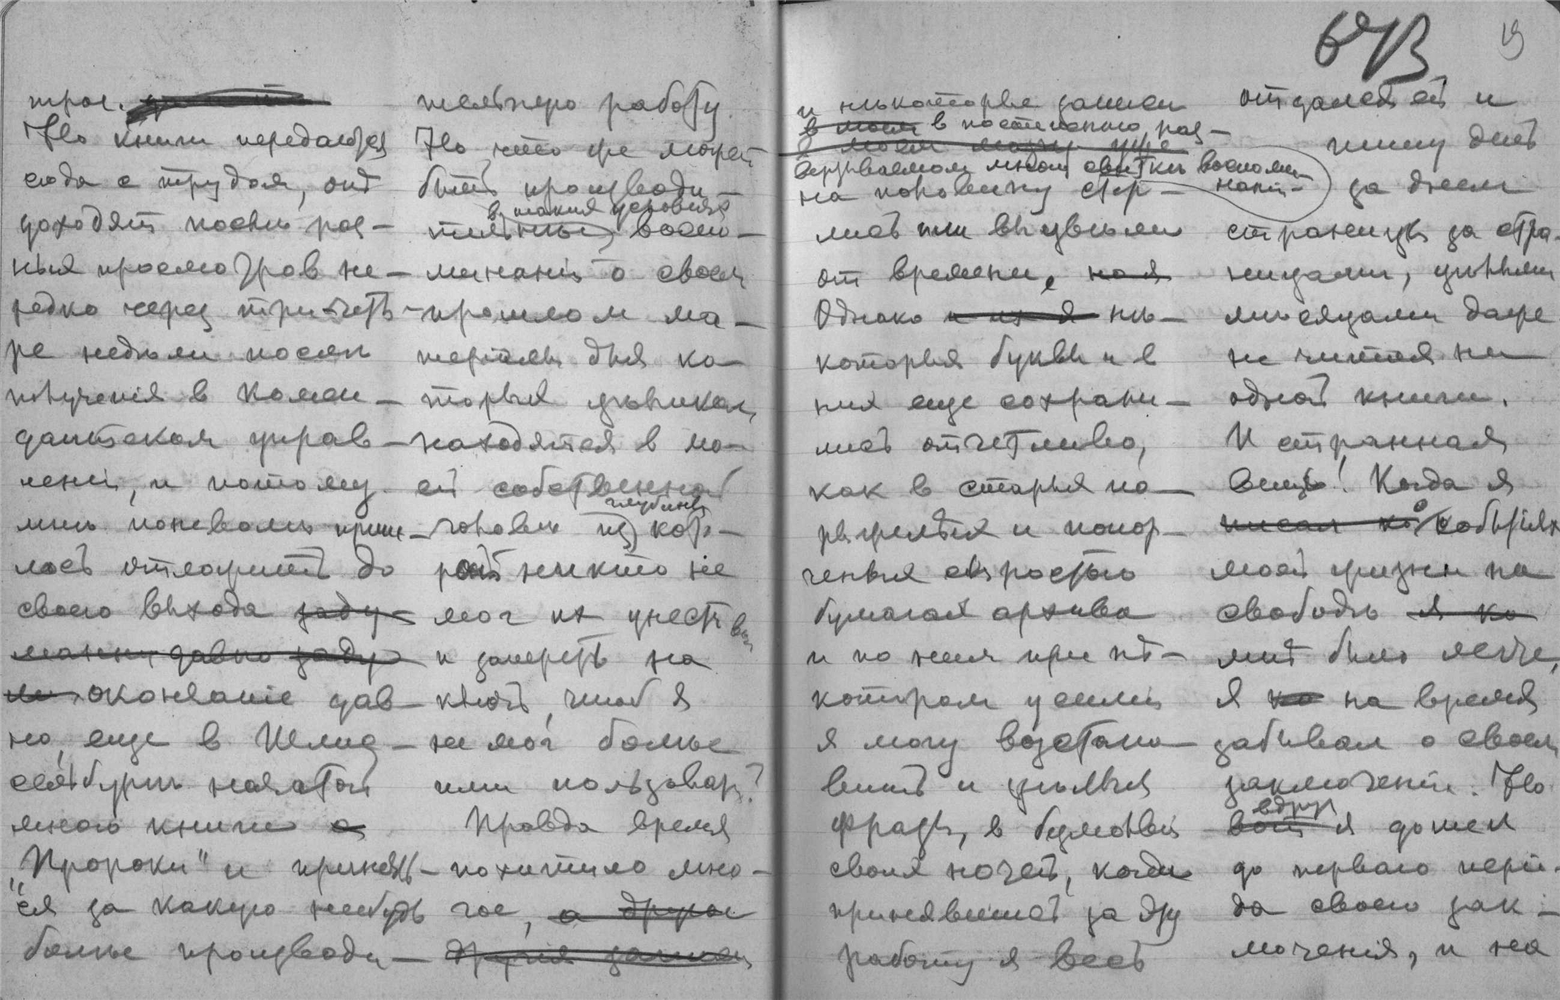 трог.
Но книги передаются
сюда с трудом, они
доходят после раз-
ных просмотров не-
редко через три-четы-
ре недели после
получения в Комен-
дантском управ-
лении, и потому
мне поневоле приш-
лось отложить до
своего выхода заду-
манную давно
окончание дав-
но, еще в Шлис-
сельбурге начатой
мною книги
"Пророки" и принять-
ся за какую нибудь
более производи-
тельную работу.
Но что же может
быть производи-
в таких условиях
тельнее, воспо-
минаний о своем
прошлом ма-
териалы для ко-
торых целиком,
находятся в мо-
ей собственной
глубине
голове из кото-
рой никто не
мог их унести
и запереть на
ключ, чтоб я
не мог больше
ими пользоваться?
Правда время
похитило мно-
гое, а другое
другия записи
6433
19
и некоторые записи
в моем в постепенно раз-
в моем мозгу уже
вертываемом мною свитке воспоми-
наний
на половину стер-
лись или выцвели
от времени,
Однако не-
которыя буквы и
ния еще сохрани-
лись отчетливо,
как в старых по-
рыжелых и попор-
ченных сыростью
бумагах архива
и по ним при не-
котором усилии
я могу возстано-
вить и целыя
фразы, в безмолвии
своих ночей, когда
принявшись за эту
работу я весь
отдался ей и
пишу день
за днем
страницы за стра-
ницами, целыми
месяцами даже
не читая ни
одной книги.
И странная
вещь! Когда я
писал о событиях
моей жизни на
свободе я ко
мне было легче,
я на время
забывал о своем
заключении. Но
вдруг
вот я дошел
до перваго пери-
да своего зак-
лючения, и на